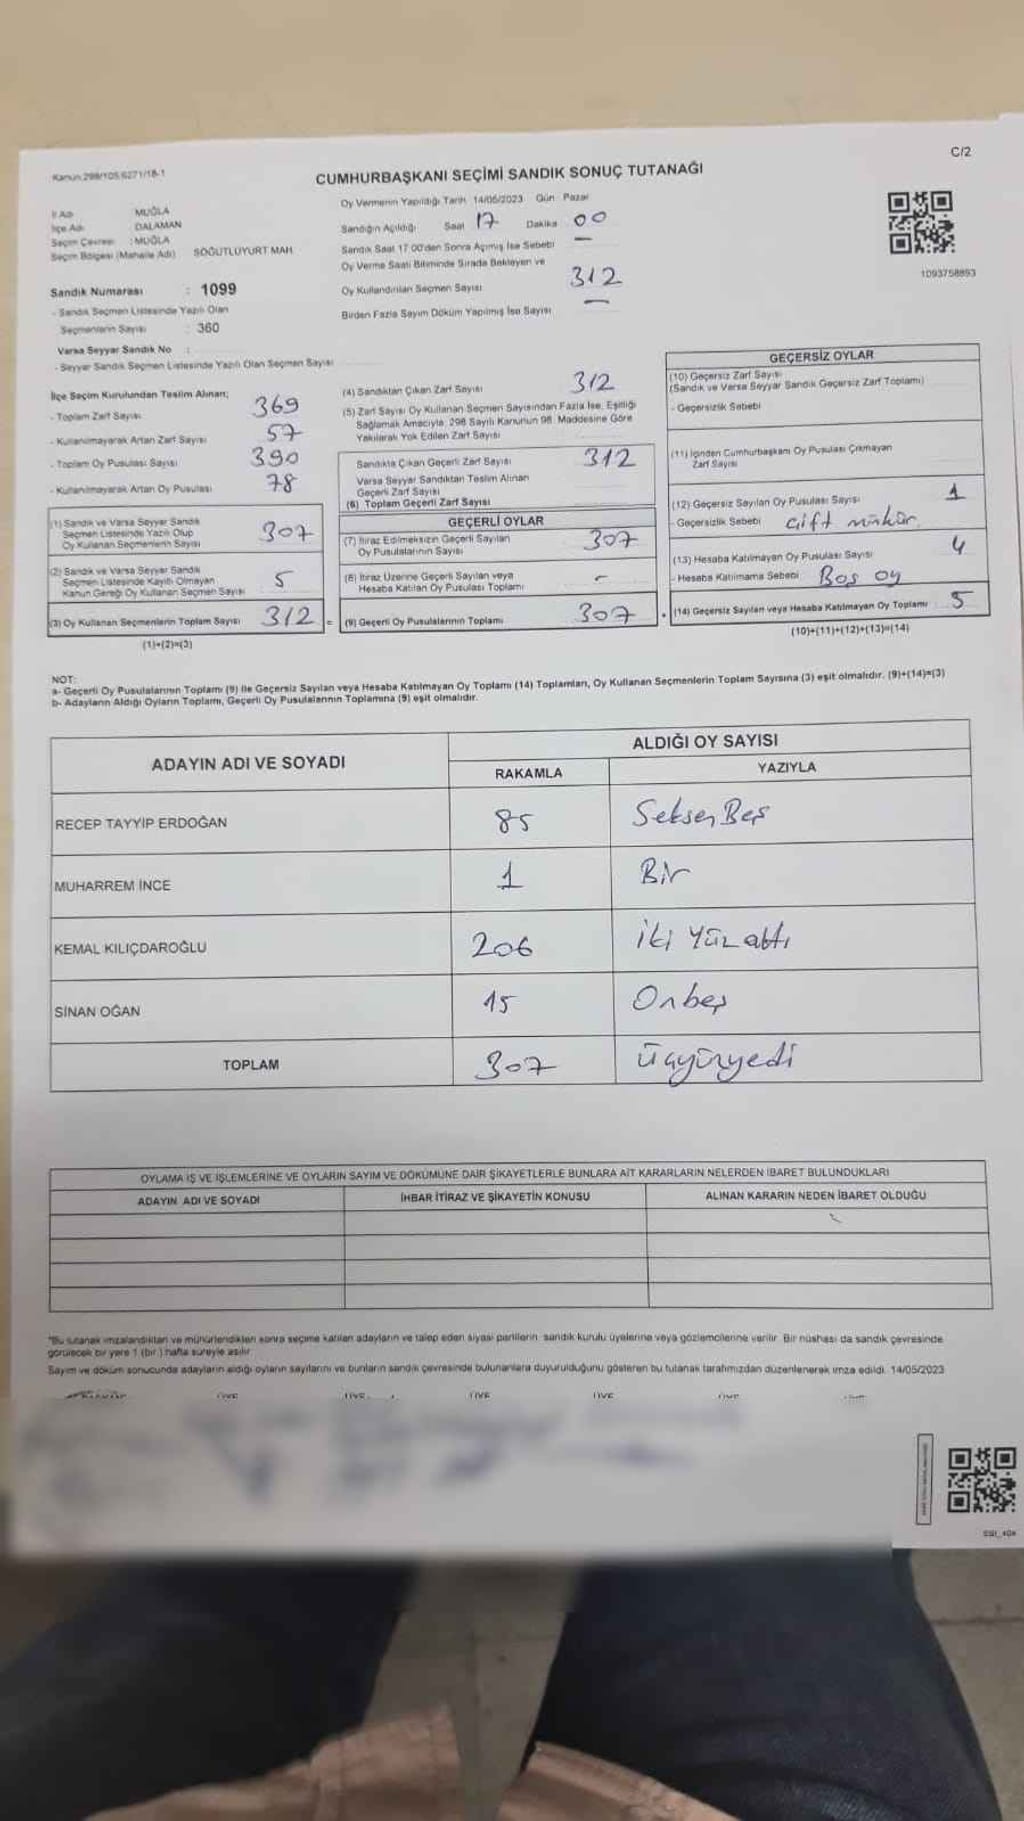 C/2
Kanun:298/105,6271/18-1
CUMHURBAŞKANI SEÇİMİ SANDIK SONUÇ TUTANAĞI
İl Adı : MUĞLA
İlçe Adı : DALAMAN
Seçim Çevresi : MUĞLA
Seçim Bölgesi (Mahalle Adı) : SÖĞÜTLÜYURT MAH.
Sandık Numarası : 1099
- Sandık Seçmen Listesinde Yazılı Olan
Seçmenlerin Sayısı : 360
Varsa Seyyar Sandık No :
- Seyyar Sandık Seçmen Listesinde Yazılı Olan Seçmen Sayısı
Oy Vermenin Yapıldığı Tarih 14/05/2023 Gün Pazar
Sandığın Açıldığı Saat 17 Dakika 00
Sandık Saat 17.00'den Sonra Açılmış İse Sebebi —
Oy Verme Saati Bitiminde Sırada Bekleyen ve
Oy Kullandırılan Seçmen Sayısı 312
Birden Fazla Sayım Döküm Yapılmış İse Sayısı —
1093758893
İlçe Seçim Kurulundan Teslim Alınan;
- Toplam Zarf Sayısı 369
- Kullanılmayarak Artan Zarf Sayısı 57
- Toplam Oy Pusulası Sayısı 390
- Kullanılmayarak Artan Oy Pusulası 78
(1) Sandık ve Varsa Seyyar Sandık
Seçmen Listesinde Yazılı Olup
Oy Kullanan Seçmenlerin Sayısı 307
(2) Sandık ve Varsa Seyyar Sandık
Seçmen Listesinde Kayıtlı Olmayan
Kanun Gereği Oy Kullanan Seçmen Sayısı 5
(3) Oy Kullanan Seçmenlerin Toplam Sayısı 312 =
(1)+(2)=(3)
(4) Sandıktan Çıkan Zarf Sayısı 312
(5) Zarf Sayısı Oy Kullanan Seçmen Sayısından Fazla İse, Eşitliği
Sağlamak Amacıyla, 298 Sayılı Kanunun 98. Maddesine Göre
Yakılarak Yok Edilen Zarf Sayısı
Sandıkta Çıkan Geçerli Zarf Sayısı 312
Varsa Seyyar Sandıktan Teslim Alınan
Geçerli Zarf Sayısı
(6) Toplam Geçerli Zarf Sayısı
GEÇERLİ OYLAR
(7) İtiraz Edilmeksizin Geçerli Sayılan
Oy Pusulalarının Sayısı 307
(8) İtiraz Üzerine Geçerli Sayılan veya
Hesaba Katılan Oy Pusulası Toplamı -
(9) Geçerli Oy Pusulalarının Toplamı 307 +
GEÇERSİZ OYLAR
(10) Geçersiz Zarf Sayısı
(Sandık ve Varsa Seyyar Sandık Geçersiz Zarf Toplamı)
- Geçersizlik Sebebi
(11) İçinden Cumhurbaşkanı Oy Pusulası Çıkmayan
Zarf Sayısı
(12) Geçersiz Sayılan Oy Pusulası Sayısı 1
- Geçersizlik Sebebi çift mühür
(13) Hesaba Katılmayan Oy Pusulası Sayısı 4
- Hesaba Katılmama Sebebi Boş oy
(14) Geçersiz Sayılan veya Hesaba Katılmayan Oy Toplamı 5
(10)+(11)+(12)+(13)=(14)
NOT:
a- Geçerli Oy Pusulalarının Toplamı (9) ile Geçersiz Sayılan veya Hesaba Katılmayan Oy Toplamı (14) Toplamları, Oy Kullanan Seçmenlerin Toplam Sayısına (3) eşit olmalıdır. (9)+(14)=(3)
b- Adayların Aldığı Oyların Toplamı, Geçerli Oy Pusulalarının Toplamına (9) eşit olmalıdır.
ADAYIN ADI VE SOYADI ALDIĞI OY SAYISI
RAKAMLA YAZIYLA
RECEP TAYYİP ERDOĞAN 85 Seksen Beş
MUHARREM İNCE 1 Bir
KEMAL KILIÇDAROĞLU 206 İki Yüz altı
SİNAN OĞAN 15 Onbeş
TOPLAM 307 üçyüzyedi
OYLAMA İŞ VE İŞLEMLERİNE VE OYLARIN SAYIM VE DÖKÜMÜNE DAİR ŞİKAYETLERLE BUNLARA AİT KARARLARIN NELERDEN İBARET BULUNDUKLARI
ADAYIN ADI VE SOYADI İHBAR İTİRAZ VE ŞİKAYETİN KONUSU ALINAN KARARIN NEDEN İBARET OLDUĞU
"Bu tutanak imzalandıktan ve mühürlendikten sonra seçime katılan adayların ve talep eden siyasi partilerin sandık kurulu üyelerine veya gözlemcilerine verilir. Bir nüshası da sandık çevresinde
görülecek bir yere 1 (bir) hafta süreyle asılır.
Sayım ve döküm sonucunda adayların aldığı oyların sayılarını ve bunların sandık çevresinde bulunanlara duyurulduğunu gösteren bu tutanak tarafımızdan düzenlenerek imza edildi. 14/05/2023